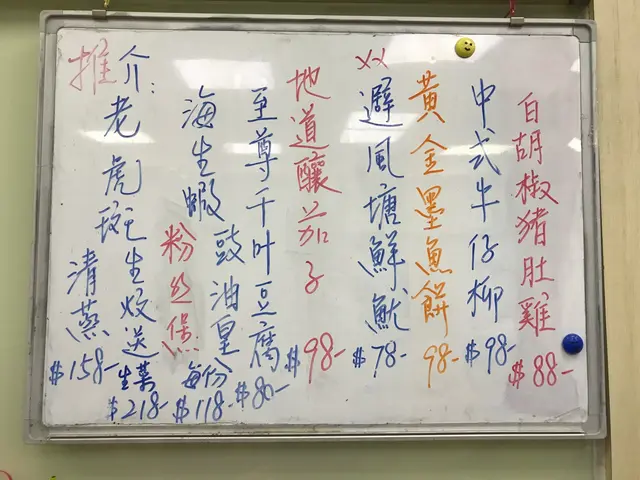 推介:
老虎斑
清蒸
$158-
生炆送
生菜
$218-
海生蝦
粉丝煲
豉油皇
每份
$118-
至尊千叶豆腐
$80-
地道釀茄子
$98-
xx
避風塘鮮魷
$78-
黃金墨魚餅
98-
中式牛仔柳
$98-
白胡椒猪肚雞
$88-